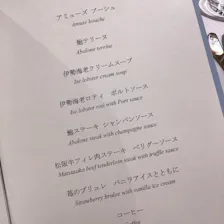 アミューズ ブーシュ
amuse bouche
鮑テリーヌ
Abalone terrine
伊勢海老クリームスープ
Ise lobster cream soup
伊勢海老ロティ ポルトソース
Ise lobster roti with Port sauce
鮑ステーキ シャンパンソース
Abalone steak with champagne sauce
松阪牛フィレ肉ステーキ ペリグーソース
Matsusaka beef tenderloin steak with truffle sauce
苺のブリュレ バニラアイスとともに
Strawberry brulee with vanilla ice cream
コーヒー
Coffee